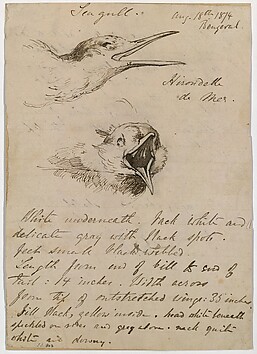 Seagull.
Aug. 18th 1874
Hirondelle
de Mer.
White underneath. Back white and
delicate gray with black spots.
feet small black webbed
Length from end of bill to end of
tail: 14 inches. Width across
from tip of outstretched wings: 35 inches
Bill black, yellow inside. head white beneath
speckled on sides and gray above. neck quite
white and downy.